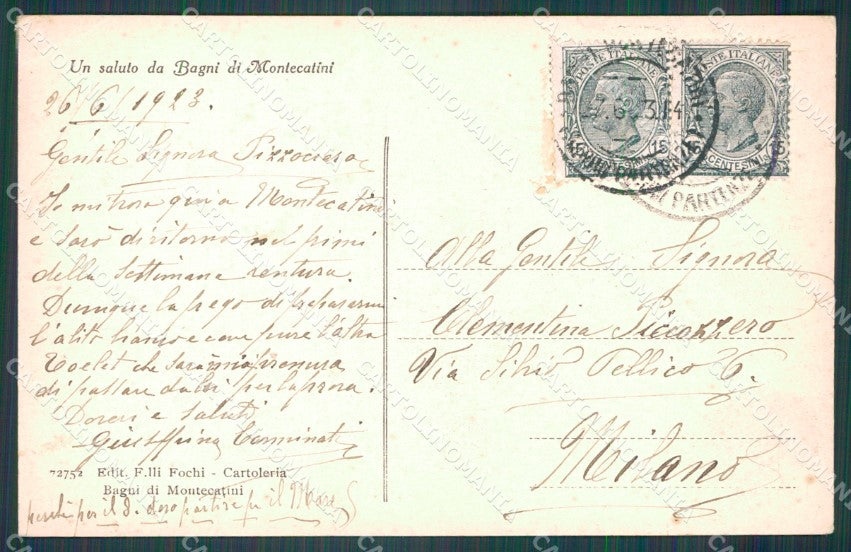 Un saluto da Bagni di Montecatini
26/6/1923.
Gentile Signora
Io mi trovo qui a Montecatini
e sarò di ritorno nel primi
della settimana ventura.
Dunque la prego di prepararmi
l'abito bianco e come pure l'altra
Toelet che sarà mia premura
di passare da lei per la prova.
Doveri e Saluti
Giuseppina Carminati
72752 Edit. F.lli Fochi - Cartoleria
Bagni di Montecatini
perchè per il 8. devo partire per il Mare
POSTE ITALIANE
CENTESIMI 15
POSTE ITALIANE
CENTESIMI 15
PARTENZE
Alla Gentile Signora
Clementina
Via Silvio Pellico 6.
Milano
CARTOLINOMANIA